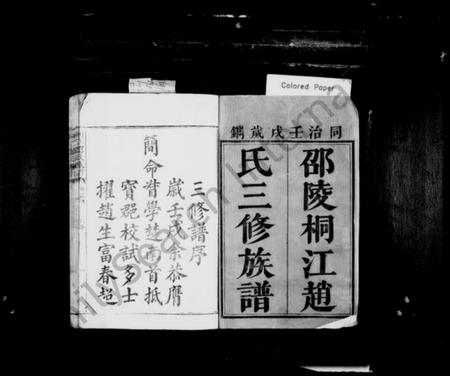 Colored Paper
同治壬戌歲鐫
邵陵桐江趙
氏三修族譜
三修譜序
歲壬戌余恭膺
簡命督學楚南首抵
寶郡校試多士
擢趙生富春超
FamilySearch International